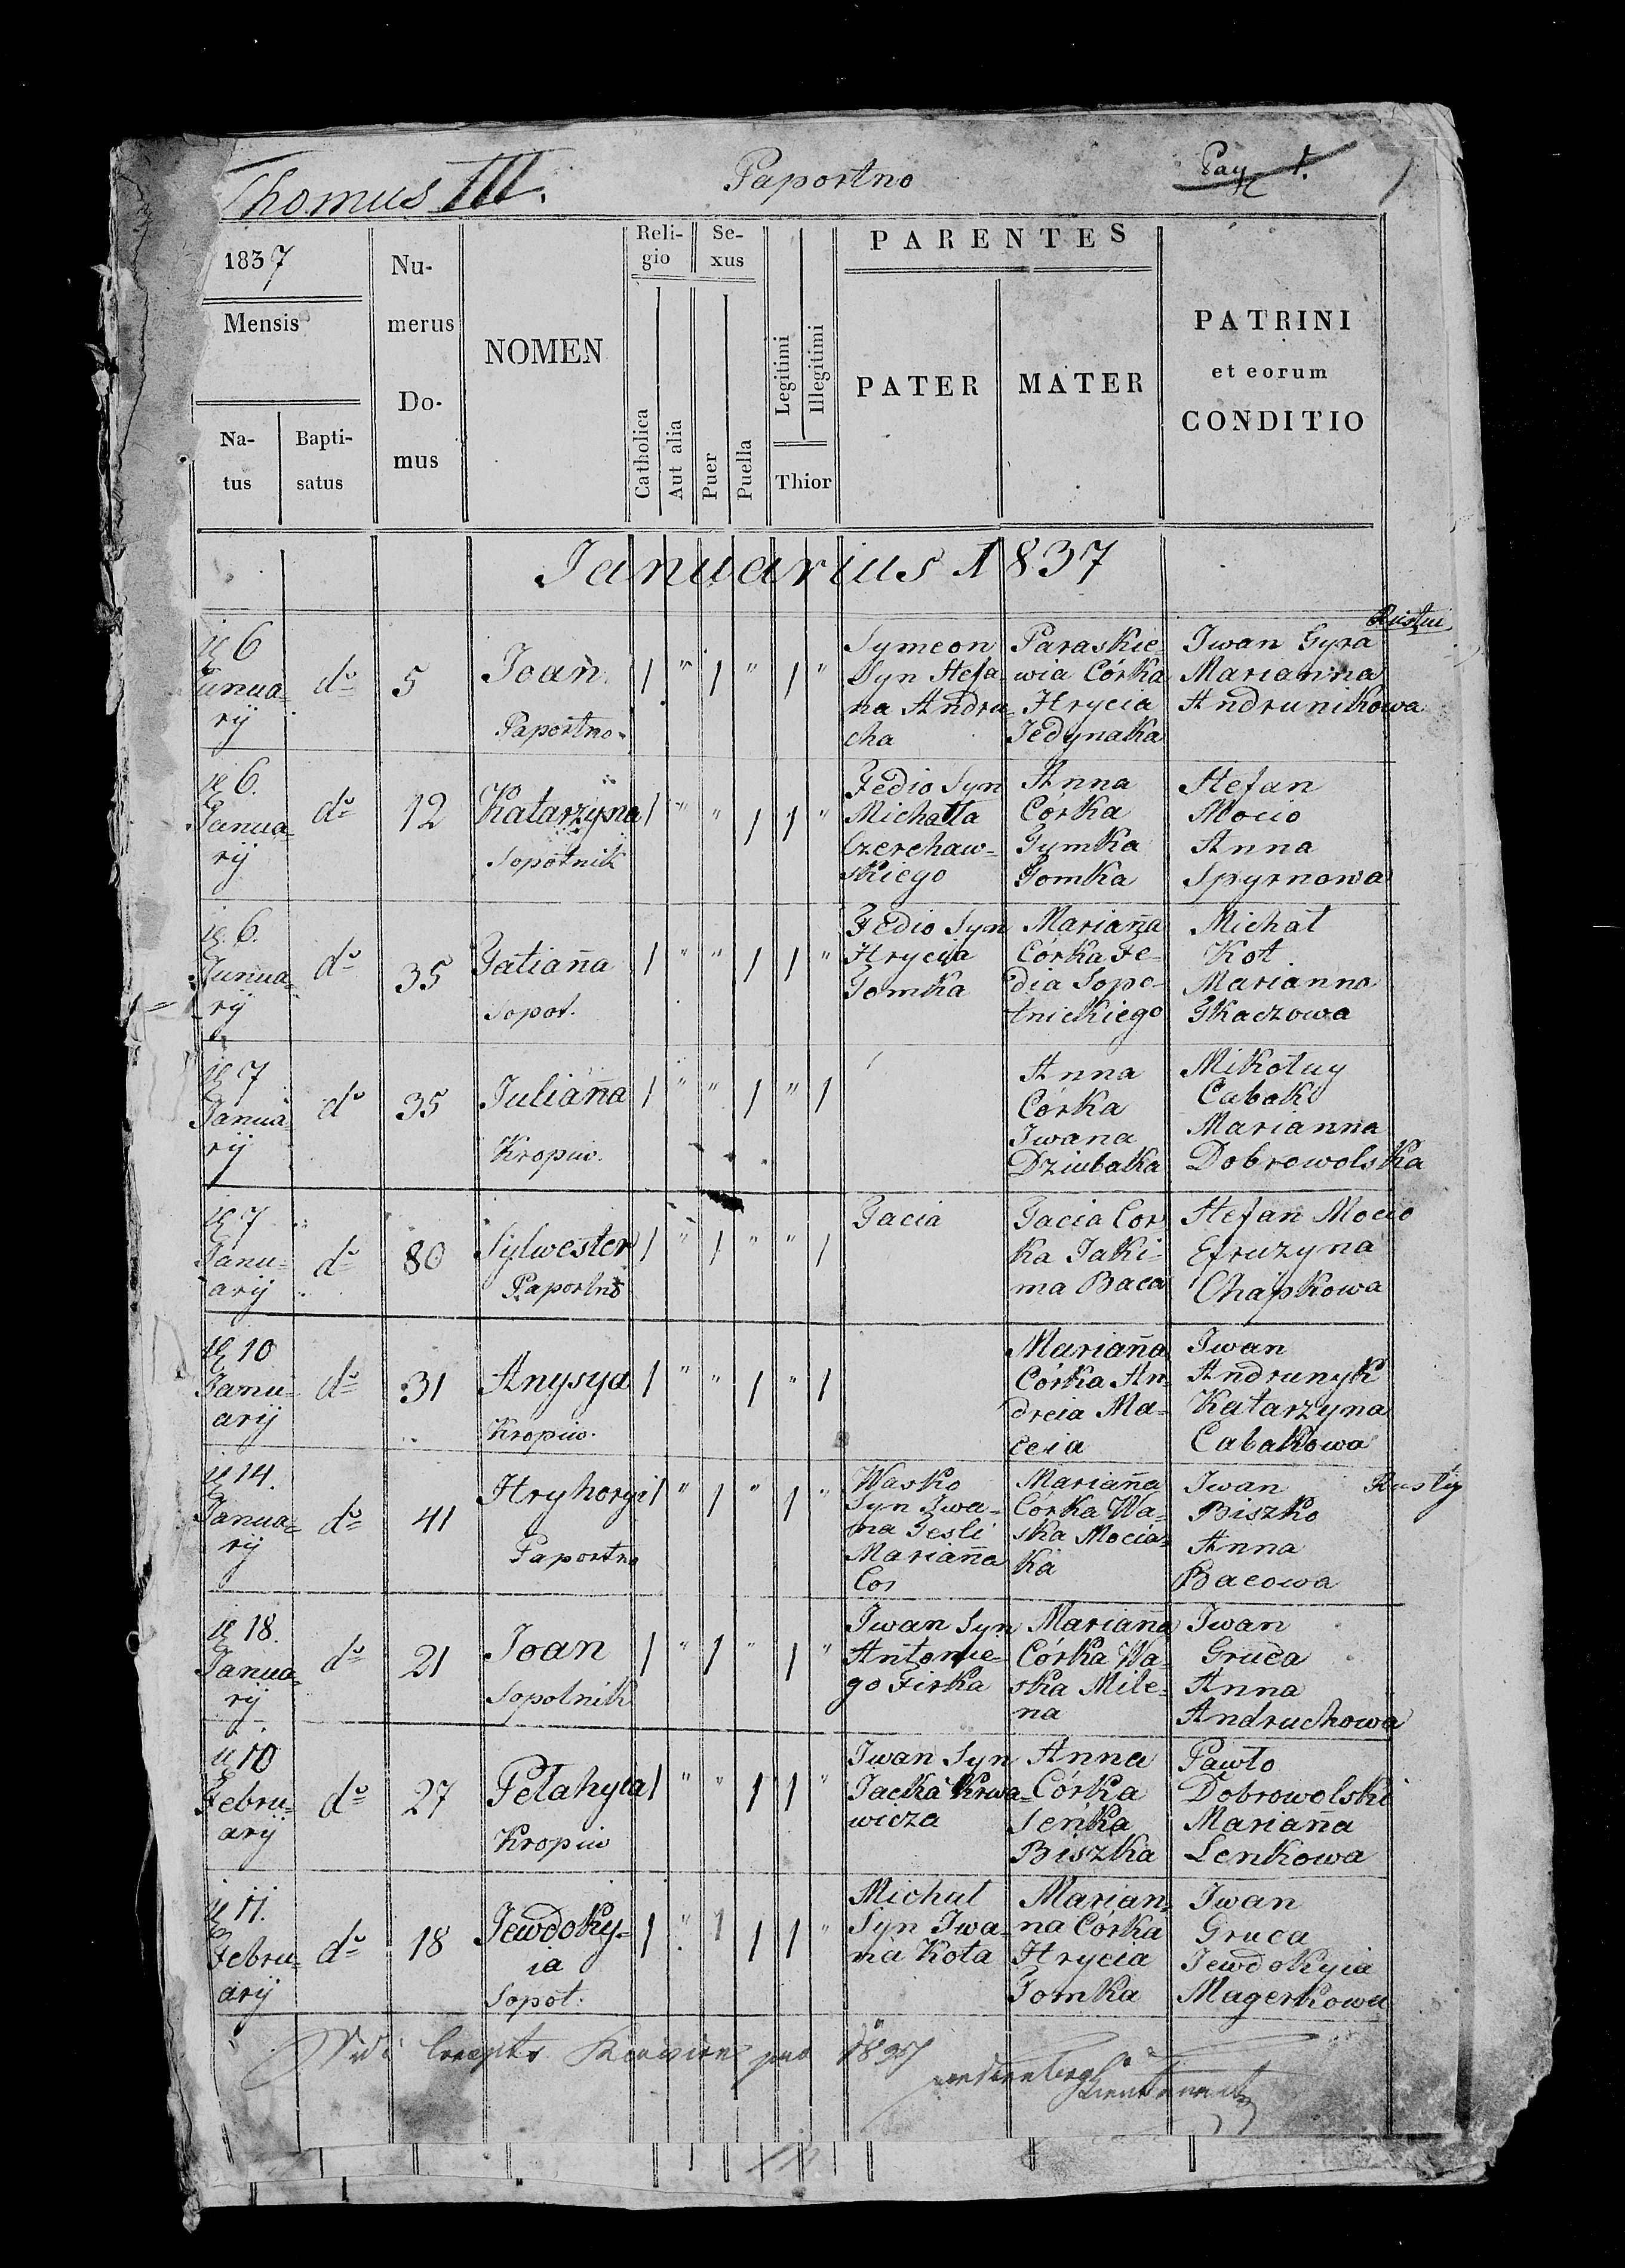 Thomus III.
Paportno
Pag 1.
1837
Mensis
Na-
tus
Bapti-
satus
Nu-
merus
Do-
mus
NOMEN
Reli-
gio
Catholica
Aut alia
Se-
xus
Puer
Puella
Legitimi
Illegitimi
Thior
PARENTES
PATER
MATER
PATRINI
et eorum
CONDITIO
Januarius 1837
6
Janua-
rij
do
5
Joan
Paportno
/ " / " / "
Symeon
Syn Stefa
na Andru-
cha
Paraskie-
wia Córka
Hrycia
Jedynaka
Iwan Gyra
Marianna
Andrunikowa
6.
Janua-
rij
do
12
Katarzyna
Sopotnik
/ " " / / "
Fedio Syn
Michatta
Czerchaw-
skiego
Anna
Córka
Tymka
Tomka
Stefan
Mocio
Anna
Spyrnowa
6.
Janua-
rij
do
35
Tatianna
Sopot.
/ " " / / "
Fedio Syn
Hrycia
Tomka
Marianna
Córka Fe-
dia Sopo-
tnickiego
Michat
Kot
Marianna
Tkaczowa
7
Janua-
rij
do
35
Julianna
Kropiw.
/ " " / " /
Anna
Córka
Iwana
Dziubaka
Mikołay
Cabak
Marianna
Dobrowolska
7
Janu-
arij
do
80
Sylwester
Paportno
/ " / " " /
Jacia
Jacia Cor
ka Jaki-
ma Baca
Stefan Mocio
Efruzyna
Chapkowa
10
Janu-
arij
do
31
Anysya
Kropiw.
/ " " / " /
Marianna
Córka An-
dreia Ma-
ceia
Iwan
Andrunyk
Katarzyna
Cabakowa
14.
Janua-
rij
do
41
Hryhorgi
Paportno
/ " / " / "
Wasko
Syn Iwa-
na Tesli
Marianna
Cor
Marianna
Córka Wa-
ska Mocia-
ka
Iwan
Biszko
Anna
Bacowa
18.
Janua-
rij
do
21
Joan
Sopotnik
/ " / " / "
Iwan Syn
Antonie-
go Firka
Marianna
Córka Wa-
ska Mile-
na
Iwan
Gruca
Anna
Andruchowa
10
Febru-
arij
do
27
Pelahyia
Kropiw
/ " " / / "
Iwan Syn
Jacka Krwa-
wicza
Anna
Córka
Seńka
Biszka
Pawło
Dobrowolski
Marianna
Lenkowa
11.
Febru-
arij
do
18
Jewdoky-
ia
Sopot:
/ " / / "
Michal
Syn Iwa-
na Kota
Marian-
na Córka
Hrycia
Tomka
Iwan
Gruca
Jewdokyia
Magerkowa
1837